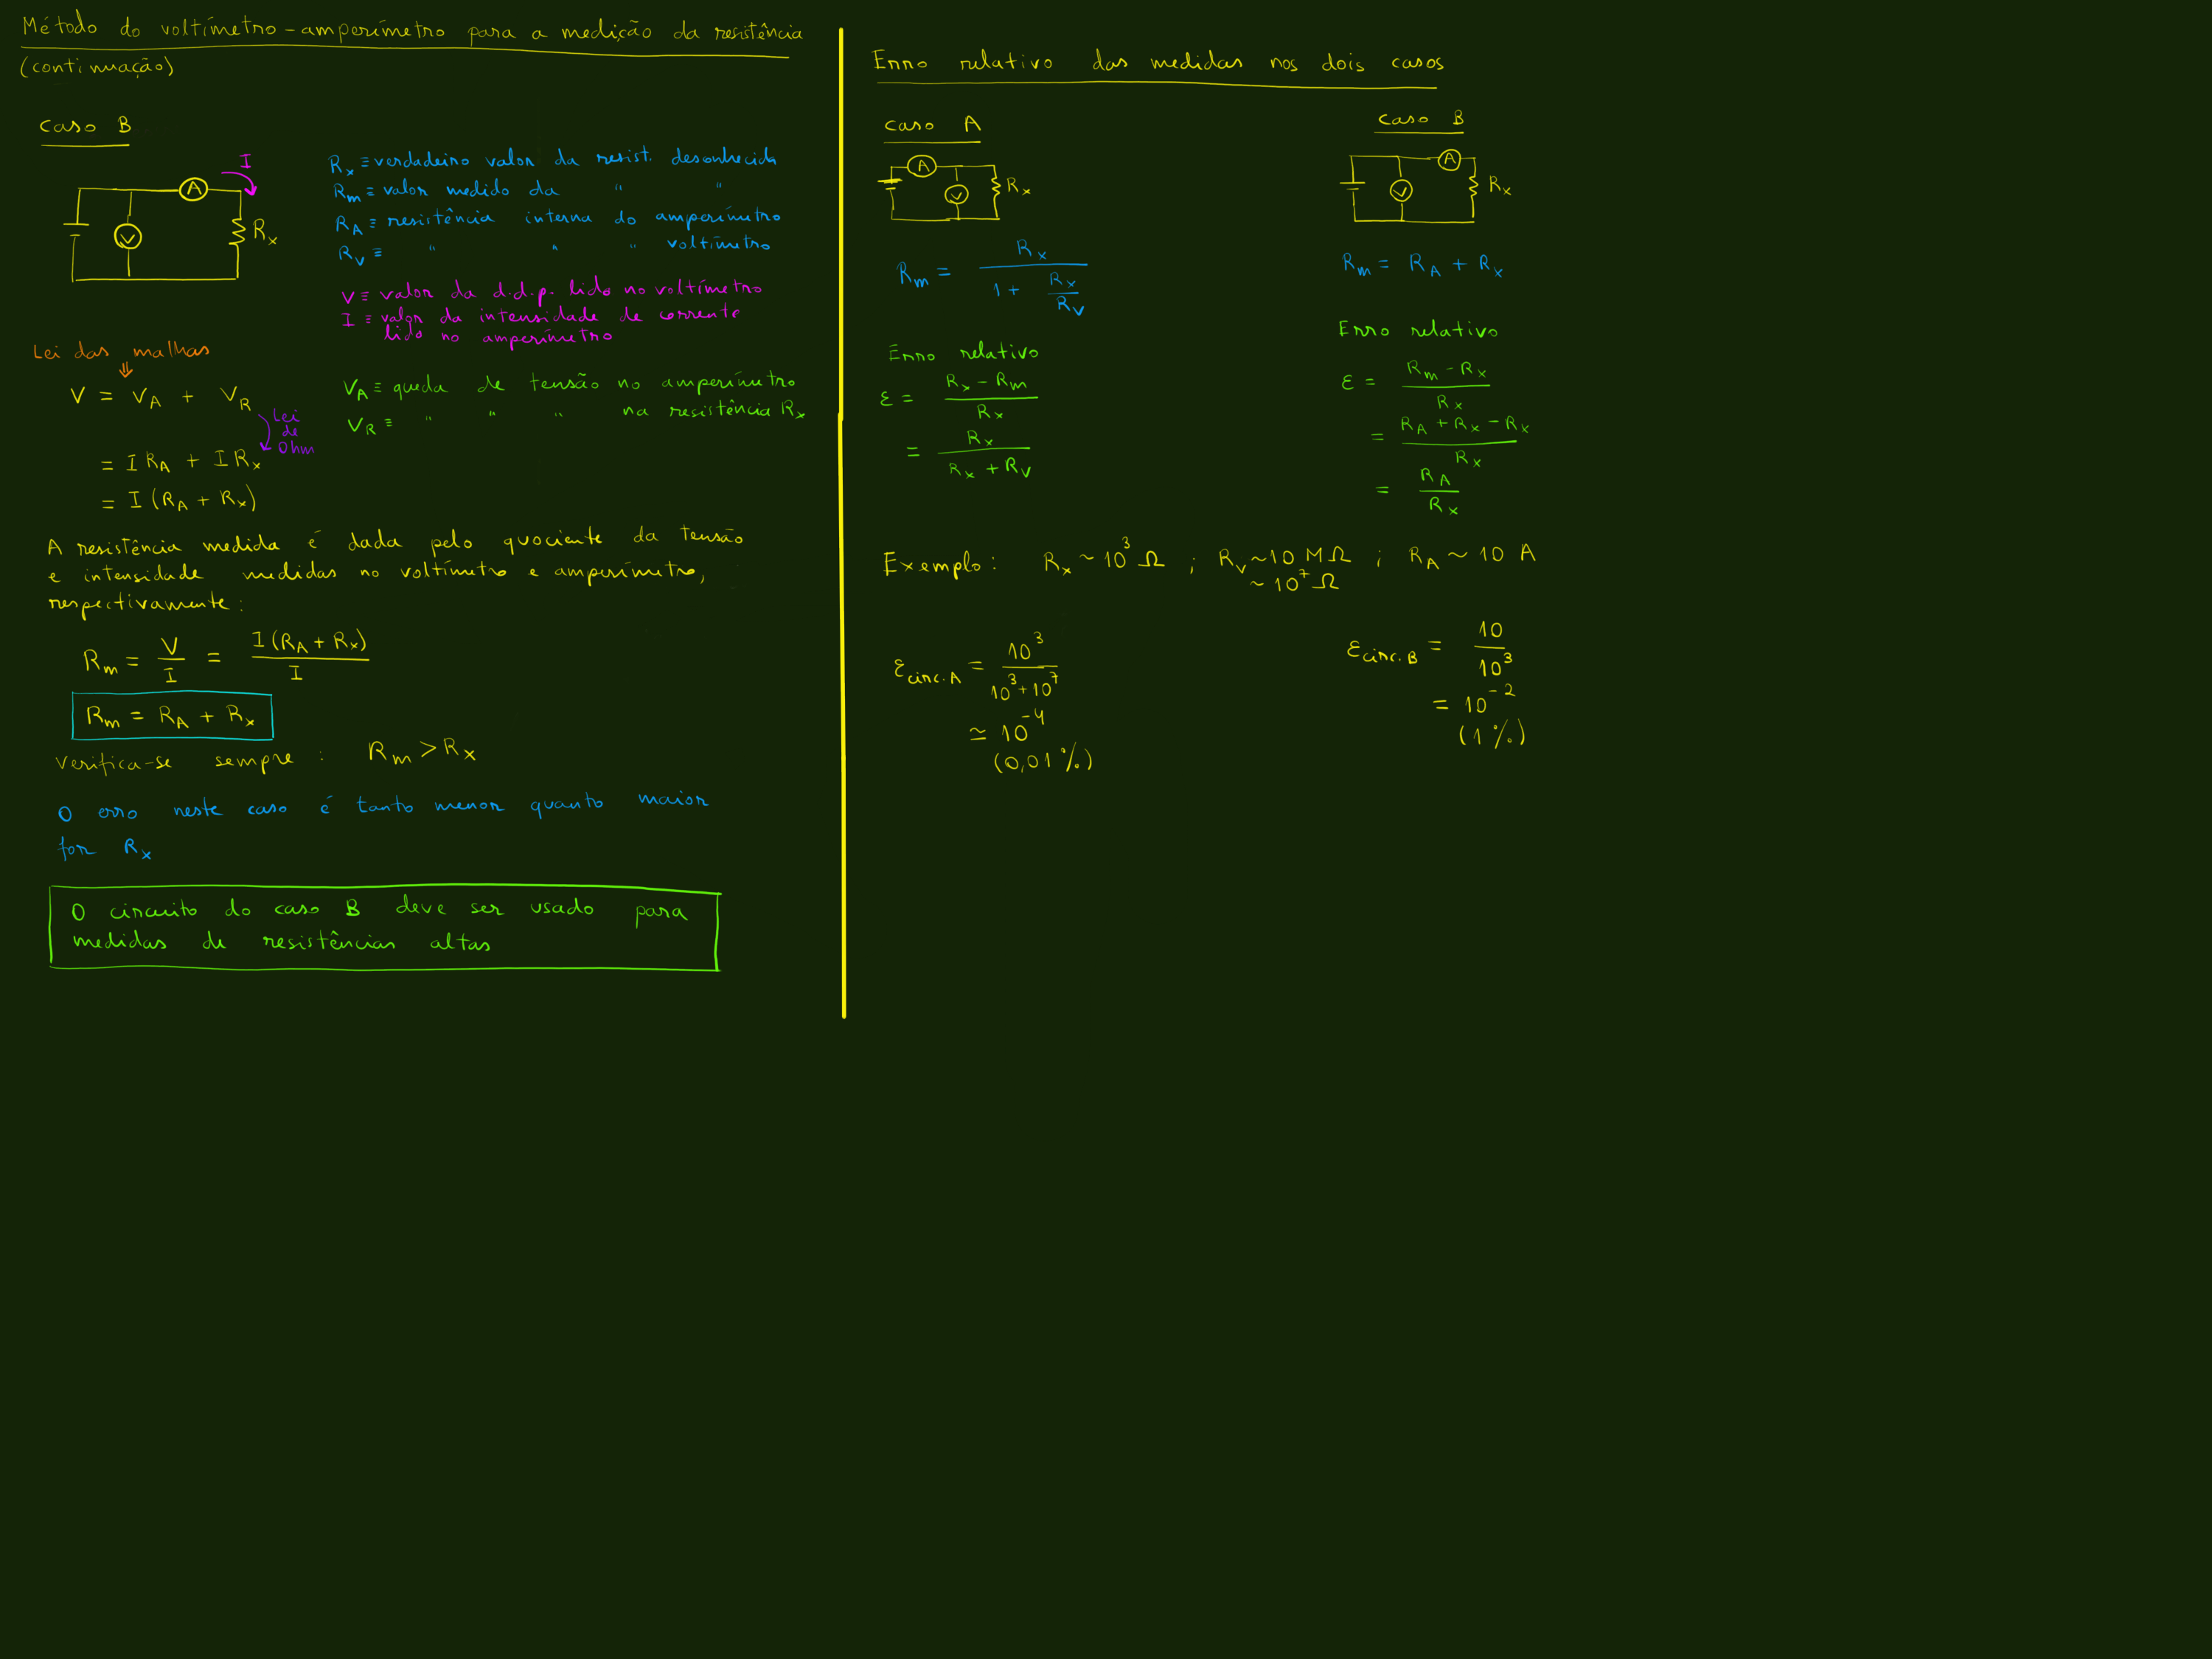 Método do voltímetro-amperímetro para a medição da resistência
(continuação)
caso B
I
A
V
Rx
Rx ≡ verdadeiro valor da resist. desconhecida
Rm ≡ valor medido da " "
RA ≡ resistência interna do amperímetro
RV ≡ " " " voltímetro
V ≡ valor da d.d.p. lido no voltímetro
I ≡ valor da intensidade de corrente
lido no amperímetro
Lei das malhas
⇓
V = VA + VR
Lei
de
Ohm
VA ≡ queda de tensão no amperímetro
VR ≡ " " " na resistência Rx
= I RA + I Rx
= I (RA + Rx)
A resistência medida é dada pelo quociente da tensão
e intensidade medidas no voltímetro e amperímetro,
respectivamente:
Rm = V/I = I(RA + Rx)/I
Rm = RA + Rx
verifica-se sempre : Rm > Rx
O erro neste caso é tanto menor quanto maior
for Rx
O circuito do caso B deve ser usado para
medidas de resistências altas
Erro relativo das medidas nos dois casos
caso A
A
V
Rx
Rm = Rx/(1 + Rx/RV)
Erro relativo
ε = (Rx - Rm)/Rx
= Rx/(Rx + RV)
caso B
A
V
Rx
Rm = RA + Rx
Erro relativo
ε = (Rm - Rx)/Rx
= (RA + Rx - Rx)/Rx
= RA/Rx
Exemplo: Rx ~ 10³ Ω ; RV ~ 10 MΩ ; RA ~ 10 A
~ 10⁷ Ω
εcirc.A = 10³/(10³ + 10⁷)
≃ 10⁻⁴
(0,01 %)
εcirc.B = 10/10³
= 10⁻²
(1 %)